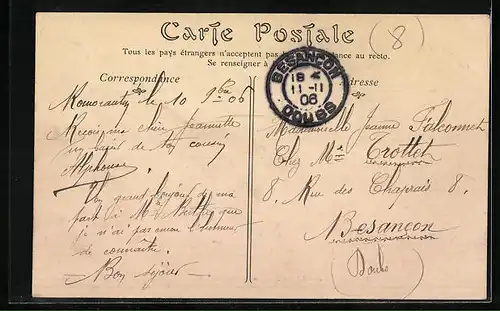 Carte Postale
(8)
Tous les pays étrangers n'acceptent pas ance au recto.
Se renseigner à
Correspondance
Adresse
BESANÇON
18
11-11
06
DOUBS
le 10 9bre 06
Reçois ma chère Jeannette
un baiser de ton cousin
Alphonse.
Un grand bonjour de ma
part à Mr que
je n'ai pas encore l'honneur
de connaître.
Bon séjour
Mademoiselle Jeanne Falconnet
Chez Mr Trottet
8. Rue des Chaprais 8.
Besançon
(Doubs)